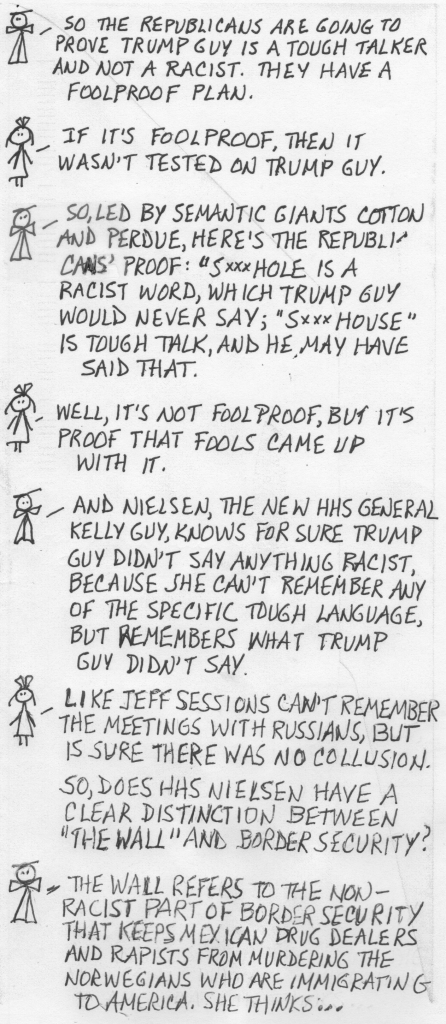 SO THE REPUBLICANS ARE GOING TO
PROVE TRUMP GUY IS A TOUGH TALKER
AND NOT A RACIST. THEY HAVE A
FOOLPROOF PLAN.
IF IT'S FOOLPROOF, THEN IT
WASN'T TESTED ON TRUMP GUY.
SO, LED BY SEMANTIC GIANTS COTTON
AND PERDUE, HERE'S THE REPUBLI-
CANS' PROOF: "SxxxHOLE IS A
RACIST WORD, WHICH TRUMP GUY
WOULD NEVER SAY; "SxxxHOUSE"
IS TOUGH TALK, AND HE MAY HAVE
SAID THAT.
WELL, IT'S NOT FOOLPROOF, BUT IT'S
PROOF THAT FOOLS CAME UP
WITH IT.
AND NIELSEN, THE NEW HHS GENERAL
KELLY GUY, KNOWS FOR SURE TRUMP
GUY DIDN'T SAY ANYTHING RACIST,
BECAUSE SHE CAN'T REMEMBER ANY
OF THE SPECIFIC TOUGH LANGUAGE,
BUT REMEMBERS WHAT TRUMP
GUY DIDN'T SAY.
LIKE JEFF SESSIONS CAN'T REMEMBER
THE MEETINGS WITH RUSSIANS, BUT
IS SURE THERE WAS NO COLLUSION.
SO, DOES HHS NIELSEN HAVE A
CLEAR DISTINCTION BETWEEN
"THE WALL" AND BORDER SECURITY?
THE WALL REFERS TO THE NON-
RACIST PART OF BORDER SECURITY
THAT KEEPS MEXICAN DRUG DEALERS
AND RAPISTS FROM MURDERING THE
NORWEGIANS WHO ARE IMMIGRATING
TO AMERICA. SHE THINKS...